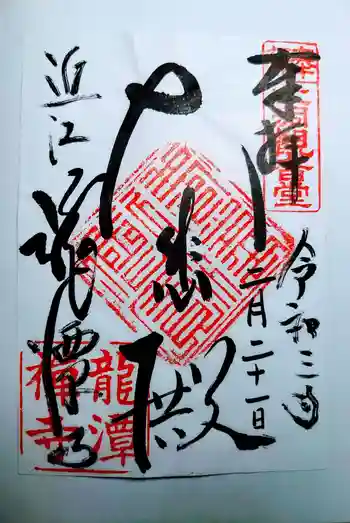 奉拝
令和三年
二月二十一日
大悲殿
近江 龍潭寺
龍潭
禅寺